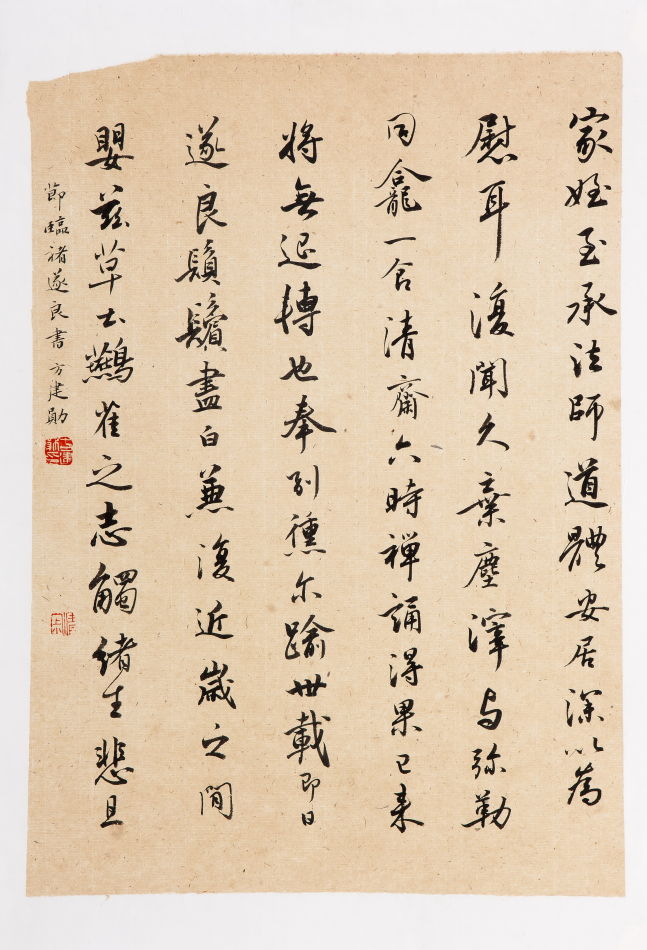 家姪至承法師道體安居深以為
慰耳復聞久棄塵滓与弥勒
同龕一食清齋六時禅誦得果已来
将無退轉也奉别倐尔踰卅載即日
遂良鬚鬢盡白兼復近歲之間
嬰茲草土鷰雀之志觸緒生悲且
節臨褚遂良書方建勛